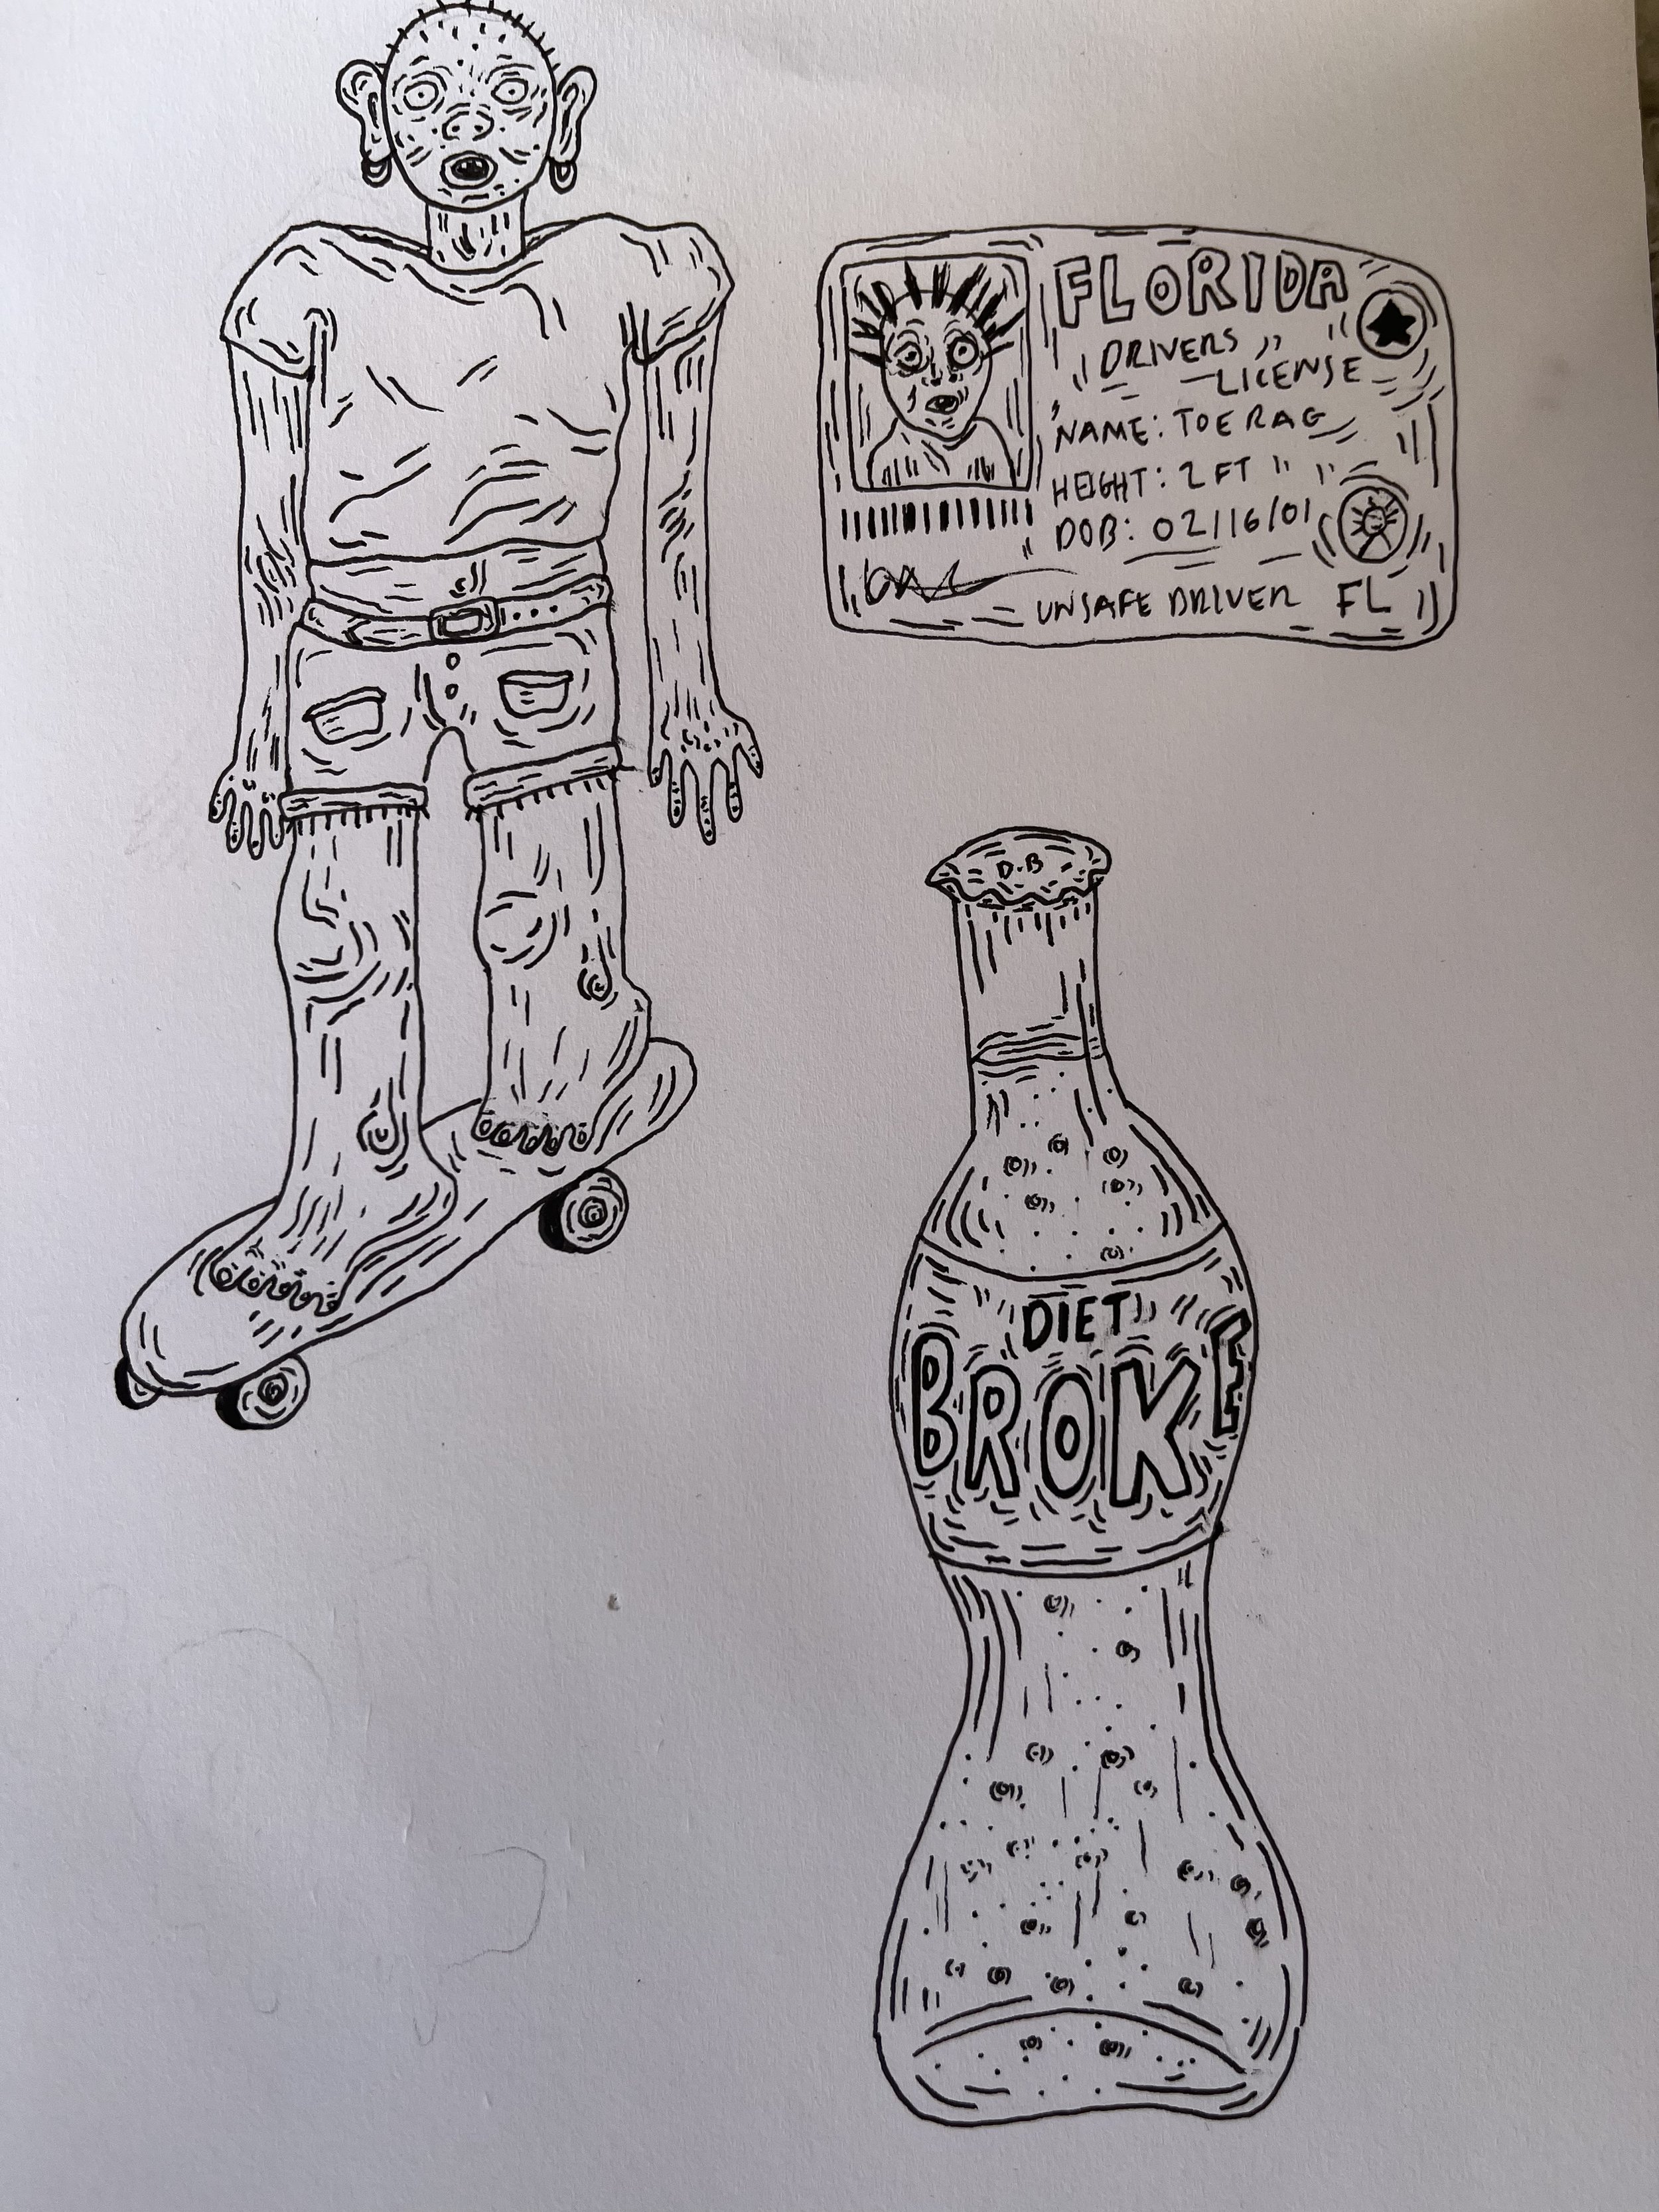 FLORIDA
DRIVERS
LICENSE
NAME: TOE RAG
HEIGHT: 2 FT
DOB: 02/16/01
UNSAFE DRIVER FL
D.B
DIET
BROKE